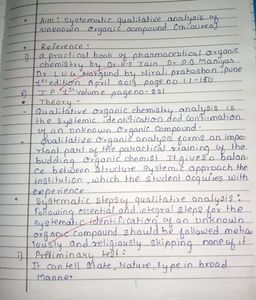 • Aim: Systematic qualitative analysis of
unknown organic compound (thiourea)
• Reference:
1) A practical book of pharmaceutical organic
chemistry by Dr. K S Jain Dr. P B Maniyar
Dr. L V G Nargund by Nirali prakashan, pune
1st edition April page no - 1.1 - 1.50
2) I P 1st volume page no - 221
• Theory -
Qualitative organic chemistry analysis is
the systemic identification and confirmation
of an unknown organic compound.
Qualitative organic analysis forms an impo-
rtant part of the practical training of the
budding organic chemist It gives a balan-
ce between structure systemic approach the
institution, which the student acquires with
experience.
• Systematic steps of qualitative analysis:
following essential and integral steps for the
systematic identification of an unknown
organic compound should be followed metha
lously and religiously skipping none of it
1) Preliminary test:
It can tell state, Nature, type in broad
manner